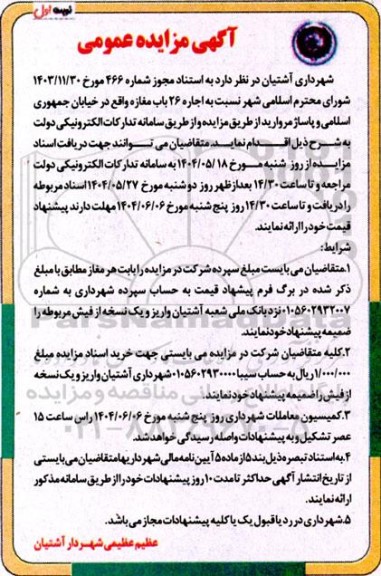 نوبت اول
آگهی مزایده عمومی
شهرداری آشتیان در نظر دارد به استناد مجوز شماره ۴۶۶ مورخ ۱۴۰۳/۱۱/۳۰
شورای محترم اسلامی شهر نسبت به اجاره ۲۶ باب مغازه واقع در خیابان جمهوری
اسلامی و پاساژ مروارید از طریق مزایده و از طریق سامانه تدارکات الکترونیکی دولت
به شرح ذیل اقدام نماید. متقاضیان می توانند جهت دریافت اسناد
مزایده از روز شنبه مورخ ۱۴۰۴/۰۵/۱۸ به سامانه تدارکات الکترونیکی دولت
مراجعه و تا ساعت ۱۴/۳۰ بعدازظهر روز دوشنبه مورخ ۱۴۰۴/۰۵/۲۷ اسناد مربوطه
را دریافت و تا ساعت ۱۴/۳۰ روز پنج شنبه مورخ ۱۴۰۴/۰۶/۰۶ مهلت دارند پیشنهاد
قیمت خود را ارائه نمایند.
شرایط:
۱.متقاضیان می بایست مبلغ سپرده شرکت در مزایده را بابت هر مغاز مطابق با مبلغ
ذکر شده در برگ فرم پیشهاد قیمت به حساب سپرده شهرداری به شماره
۰۱۰۵۶۰۲۹۳۲۰۰۷ نزد بانک ملی شعبه آشتیان واریز و یک نسخه از فیش مربوطه را
ضمیمه پیشنهاد خود نمایند.
۲.کلیه متقاضیان شرکت در مزایده می بایستی جهت خرید اسناد مزایده مبلغ
۱/۰۰۰/۰۰۰ ریال به حساب سیبا ۰۱۰۵۶۰۲۹۳۰۰۰۰ شهرداری آشتیان واریز و یک نسخه
از فیش را ضمیمه پیشنهاد خود نمایند.
۳.کمیسیون معاملات شهرداری روز پنج شنبه مورخ ۱۴۰۴/۰۶/۰۶ راس ساعت ۱۵
عصر تشکیل و به پیشنهادات واصله رسیدگی خواهد شد.
۴.به استناد تبصره ذیل بند ۵ از ماده ۵ آیین نامه مالی شهرداریها متقاضیان می بایستی
از تاریخ انتشار آگهی حداکثر تا مدت ۱۰ روز پیشنهادات خود را از طریق سامانه مذکور
ارائه نمایند.
۵.شهرداری در رد یا قبول یک یا کلیه پیشنهادات مجاز می باشد.
عظیم عظیمی شهردار آشتیان